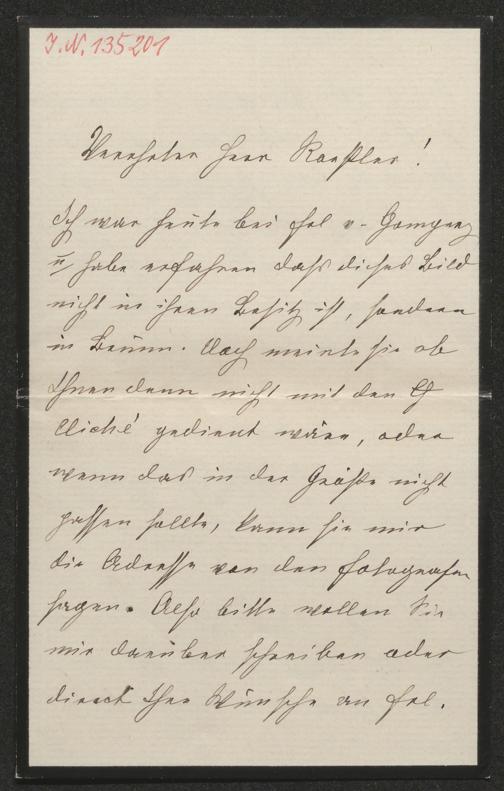 I.N. 135201
Verehrter Herr Roeßler!
Ich war heute bei Frl v. Gomperz
u habe erfahren dass dieses Bild
nicht in ihren Besitz ist, sondern
in Brünn. Doch meinte sie ob
Ihnen denn nicht mit den
Cliché gedient wäre, oder
wenn das in der Größe nicht
passen sollte, kann sie mir
die Adresse von den Fotografen
sagen. Also bitte wollen Sie
mir darüber schreiben oder
direct Ihre Wünsche an Frl.